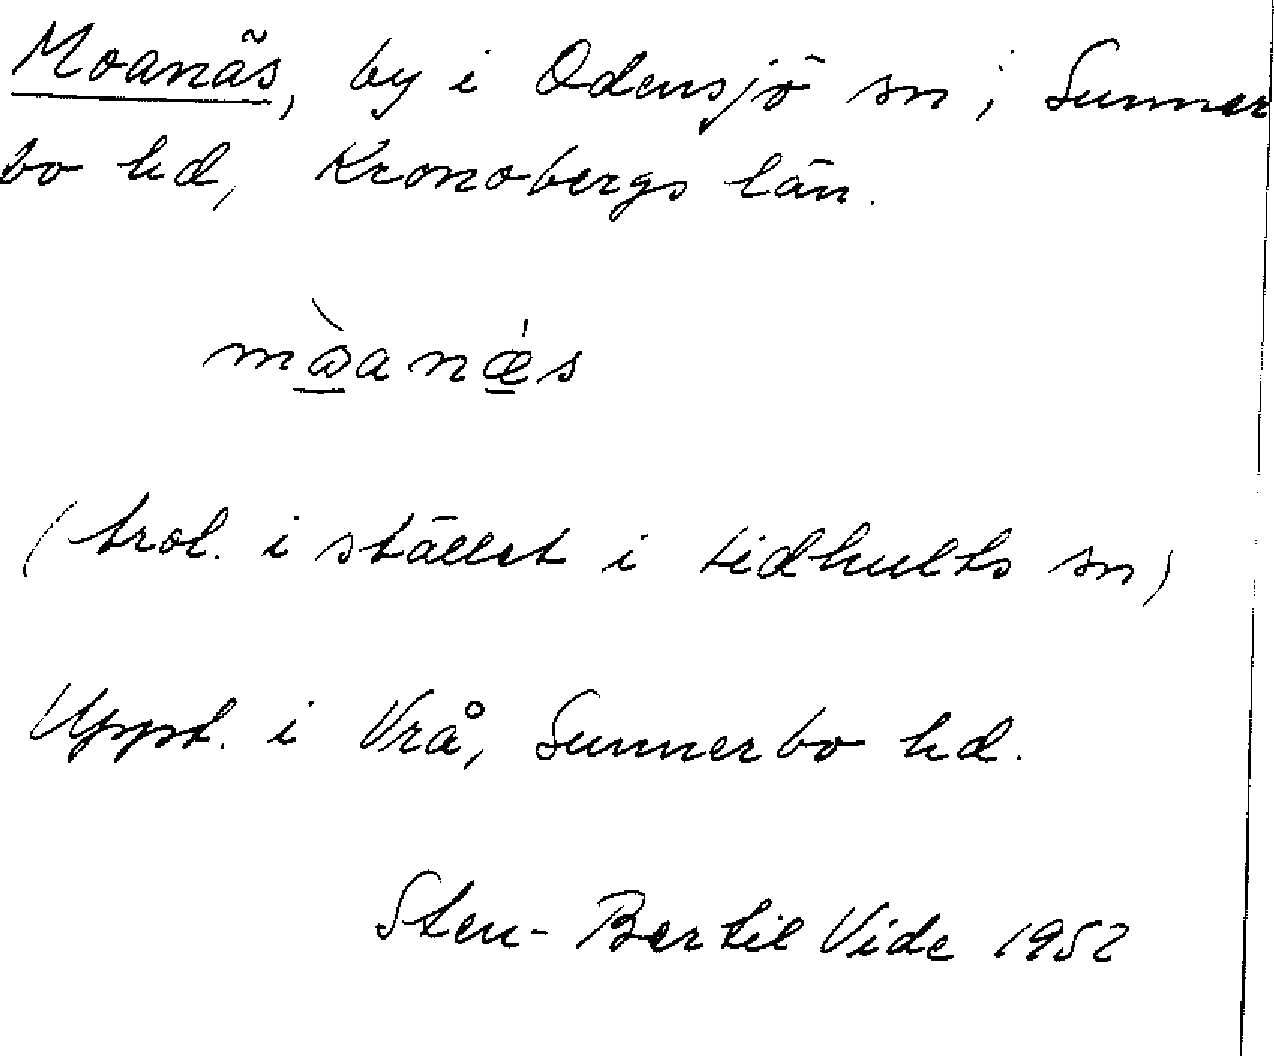 Moanäs, by i Odensjö sn, Sunner
bo hd, Kronobergs län.
(trol. i stället i Lidhults sn)
Uppt. i Vrå, Sunnerbo hd.
Sten-Bertil Vide 1952